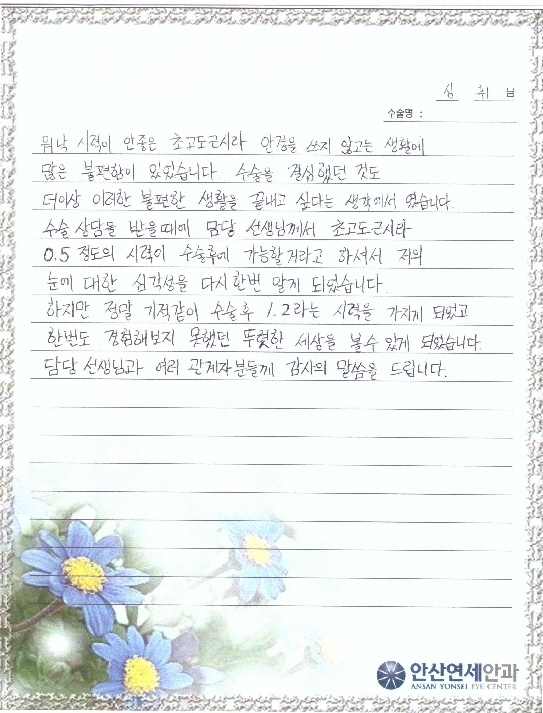 심 휘 님
수술명 :
워낙 시력이 안좋은 초고도근시라 안경을 쓰지 않고는 생활에
많은 불편함이 있었습니다. 수술을 결심했던 것도
더이상 이러한 불편한 생활을 끝내고 싶다는 생각에서 였습니다.
수술 상담을 받을때에 담당 선생님께서 초고도근시라
0.5 정도의 시력이 수술후에 가능할거라고 하셔서 저의
눈에 대한 심각성을 다시한번 알게 되었습니다.
하지만 정말 기적같이 수술후 1.2라는 시력을 가지게 되었고
한번도 경험해보지 못했던 뚜렷한 세상을 볼수 있게 되었습니다.
담당 선생님과 여러 관계자분들께 감사의 말씀을 드립니다.
안산연세안과
ANSAN YONSEI EYE CENTER